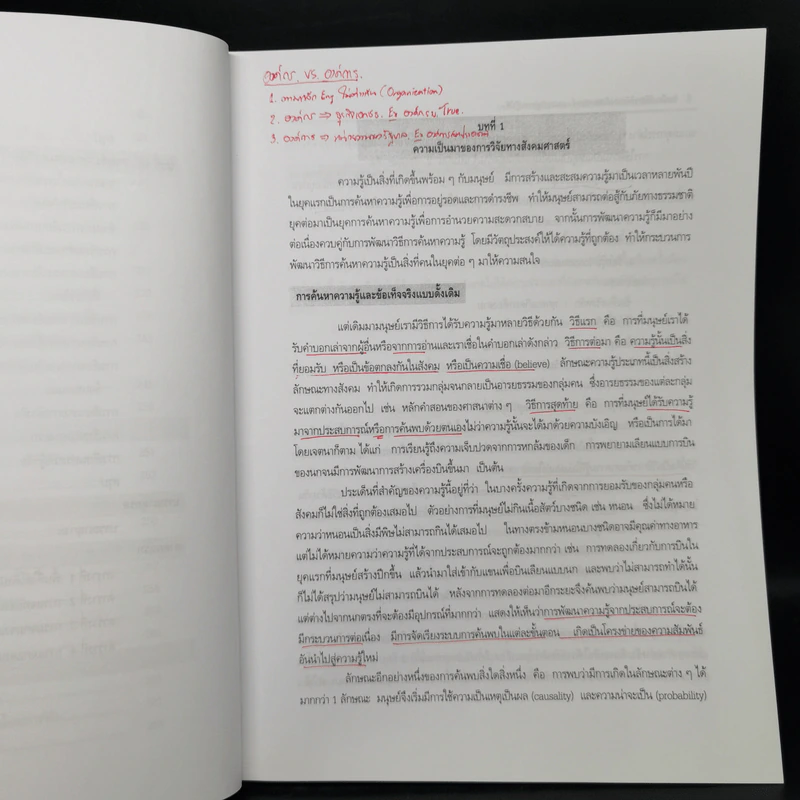 องค์กร vs. องค์การ
1. ภาษาอังกฤษ Eng ไม่ต่างกัน (Organization)
2. องค์กร ⇒ ธุรกิจเอกชน. Ex องค์กร True.
3. องค์การ ⇒ หน่วยงานของรัฐบาล. Ex
บทที่ 1
ความเป็นมาของการวิจัยทางสังคมศาสตร์
ความรู้เป็นสิ่งที่เกิดขึ้นพร้อม ๆ กับมนุษย์ มีการสร้างและสะสมความรู้มาเป็นเวลาหลายพันปี
ในยุคแรกเป็นการค้นหาความรู้เพื่อการอยู่รอดและการดำรงชีพ ทำให้มนุษย์สามารถต่อสู้กับภัยทางธรรมชาติ
ยุคต่อมาเป็นยุคการค้นหาความรู้เพื่อการอำนวยความสะดวกสบาย จากนั้นการพัฒนาความรู้ก็มีมาอย่าง
ต่อเนื่องควบคู่กับการพัฒนาวิธีการค้นหาความรู้ โดยมีวัตถุประสงค์ให้ได้ความรู้ที่ถูกต้อง ทำให้กระบวนการ
พัฒนาวิธีการค้นหาความรู้เป็นสิ่งที่คนในยุคต่อ ๆ มาให้ความสนใจ
การค้นหาความรู้และข้อเท็จจริงแบบดั้งเดิม
แต่เดิมมามนุษย์เรามีวิธีการได้รับความรู้มาหลายวิธีด้วยกัน วิธีแรก คือ การที่มนุษย์เราได้
รับคำบอกเล่าจากผู้อื่นหรือจากการอ่านและเราเชื่อในคำบอกเล่าดังกล่าว วิธีการต่อมา คือ ความรู้นั้นเป็นสิ่ง
ที่ยอมรับ หรือเป็นข้อตกลงกันในสังคม หรือเป็นความเชื่อ (believe) ลักษณะความรู้ประเภทนี้เป็นสิ่งสร้าง
ลักษณะทางสังคม ทำให้เกิดการรวมกลุ่มจนกลายเป็นอารยธรรมของกลุ่มคน ซึ่งอารยธรรมของแต่ละกลุ่ม
จะแตกต่างกันออกไป เช่น หลักคำสอนของศาสนาต่าง ๆ วิธีการสุดท้าย คือ การที่มนุษย์ได้รับความรู้
มาจากประสบการณ์หรือการค้นพบด้วยตนเองไม่ว่าความรู้นั้นจะได้มาด้วยความบังเอิญ หรือเป็นการได้มา
โดยเจตนาก็ตาม ได้แก่ การเรียนรู้ถึงความเจ็บปวดจากการหกล้มของเด็ก การพยายามเลียนแบบการบิน
ของนกจนมีการพัฒนาการสร้างเครื่องบินขึ้นมา เป็นต้น
ประเด็นที่สำคัญของความรู้นี้อยู่ที่ว่า ในบางครั้งความรู้ที่เกิดจากการยอมรับของกลุ่มคนหรือ
สังคมก็ไม่ใช่สิ่งที่ถูกต้องเสมอไป ตัวอย่างการที่มนุษย์ไม่กินเนื้อสัตว์บางชนิด เช่น หนอน ซึ่งไม่ได้หมาย
ความว่าหนอนเป็นสิ่งมีพิษไม่สามารถกินได้เสมอไป ในทางตรงข้ามหนอนบางชนิดอาจมีคุณค่าทางอาหาร
แต่ไม่ได้หมายความว่าความรู้ที่ได้จากประสบการณ์จะถูกต้องมากกว่า เช่น การทดลองเกี่ยวกับการบินใน
ยุคแรกที่มนุษย์สร้างปีกขึ้น แล้วนำมาใส่เข้ากับแขนเพื่อบินเลียนแบบนก และพบว่าไม่สามารถทำได้นั้น
ก็ไม่ได้สรุปว่ามนุษย์ไม่สามารถบินได้ หลังจากการทดลองต่อมาอีกระยะจึงค้นพบว่ามนุษย์สามารถบินได้
แต่ต่างไปจากนกตรงที่จะต้องมีอุปกรณ์ที่มากกว่า แสดงให้เห็นว่าการพัฒนาความรู้จากประสบการณ์จะต้อง
มีกระบวนการต่อเนื่อง มีการจัดเรียงระบบการค้นพบในแต่ละขั้นตอน เกิดเป็นโครงข่ายของความสัมพันธ์
อันนำไปสู่ความรู้ใหม่
ลักษณะอีกอย่างหนึ่งของการค้นพบสิ่งใดสิ่งหนึ่ง คือ การพบว่ามีการเกิดในลักษณะต่าง ๆ ได้
มากกว่า 1 ลักษณะ มนุษย์จึงเริ่มมีการใช้ความเป็นเหตุเป็นผล (causality) และความน่าจะเป็น (probability)